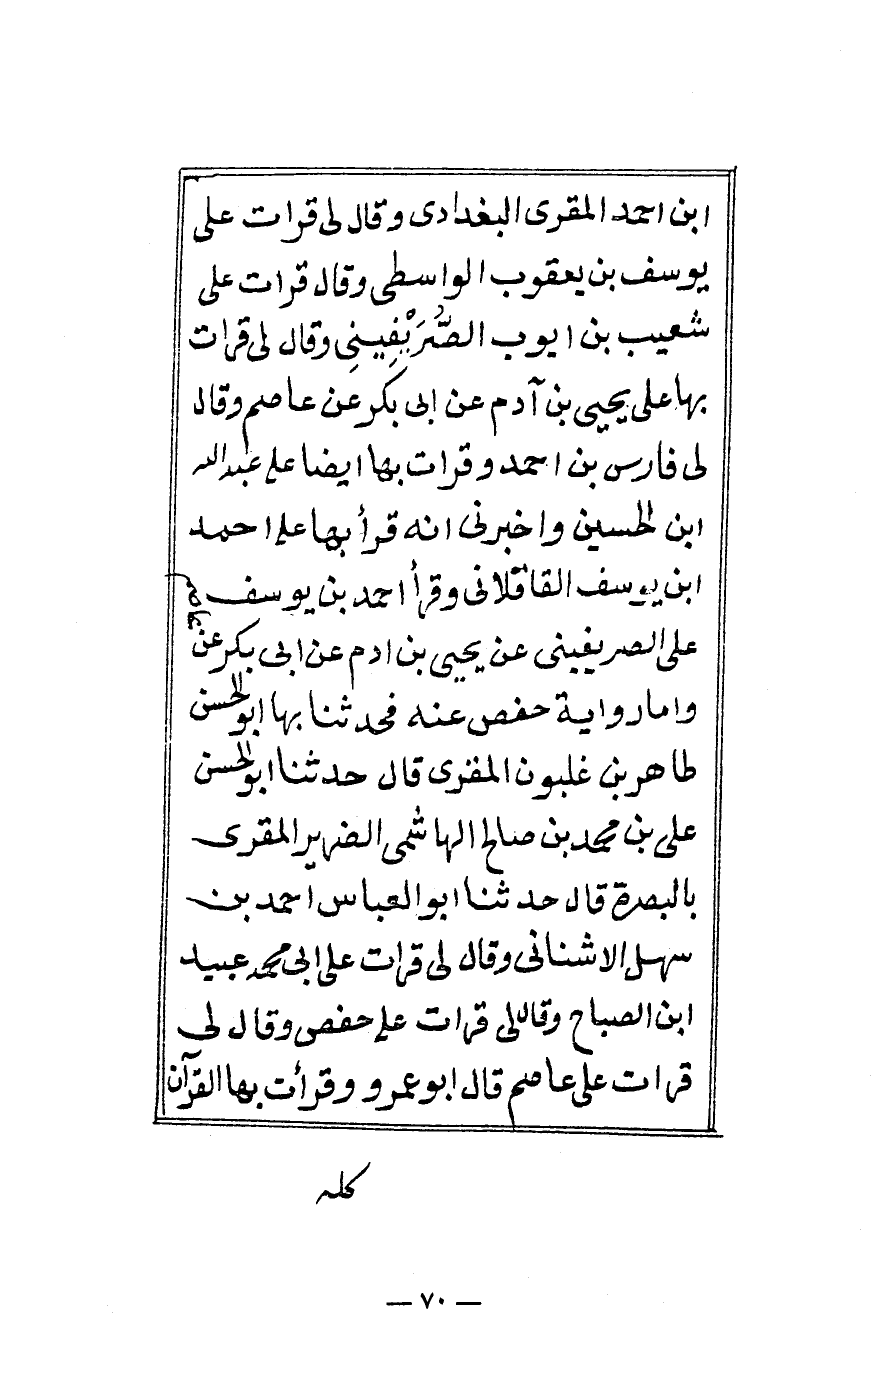 ابن احمد المقرى البغدادى وقال لى قرات على
يوسف بن يعقوب الواسطى وقال قرات على
شعيب بن ايوب الصَّرِيْفِينِى وقال لى قرات
بها على يحيى بن آدم عن ابى بكر عن عاصم وقال
لى فارس بن احمد وقرات بها ايضا على عبدالله
ابن الحسين واخبرنى انه قرأ بها على احمد
ابن يوسف القاقلانى وقرأ احمد بن يوسف
على الصريفينى عن يحيى بن ادم عن ابى بكر عن عاصم
واما رواية حفص عنه فحدثنا بها ابو الحسن
طاهر بن غلبون المقرى قال حدثنا ابو الحسن
على بن محمد بن صالح الهاشمى الضرير المقرى
بالبصرة قال حدثنا ابو العباس احمد بن
سهل الاشنانى وقال لى قرات على ابى محمد عبيد
ابن الصباح وقال لى قرات على حفص وقال لى
قرات على عاصم قال ابو عمرو وقرأت بها القرآن
كله
— ٧٠ —